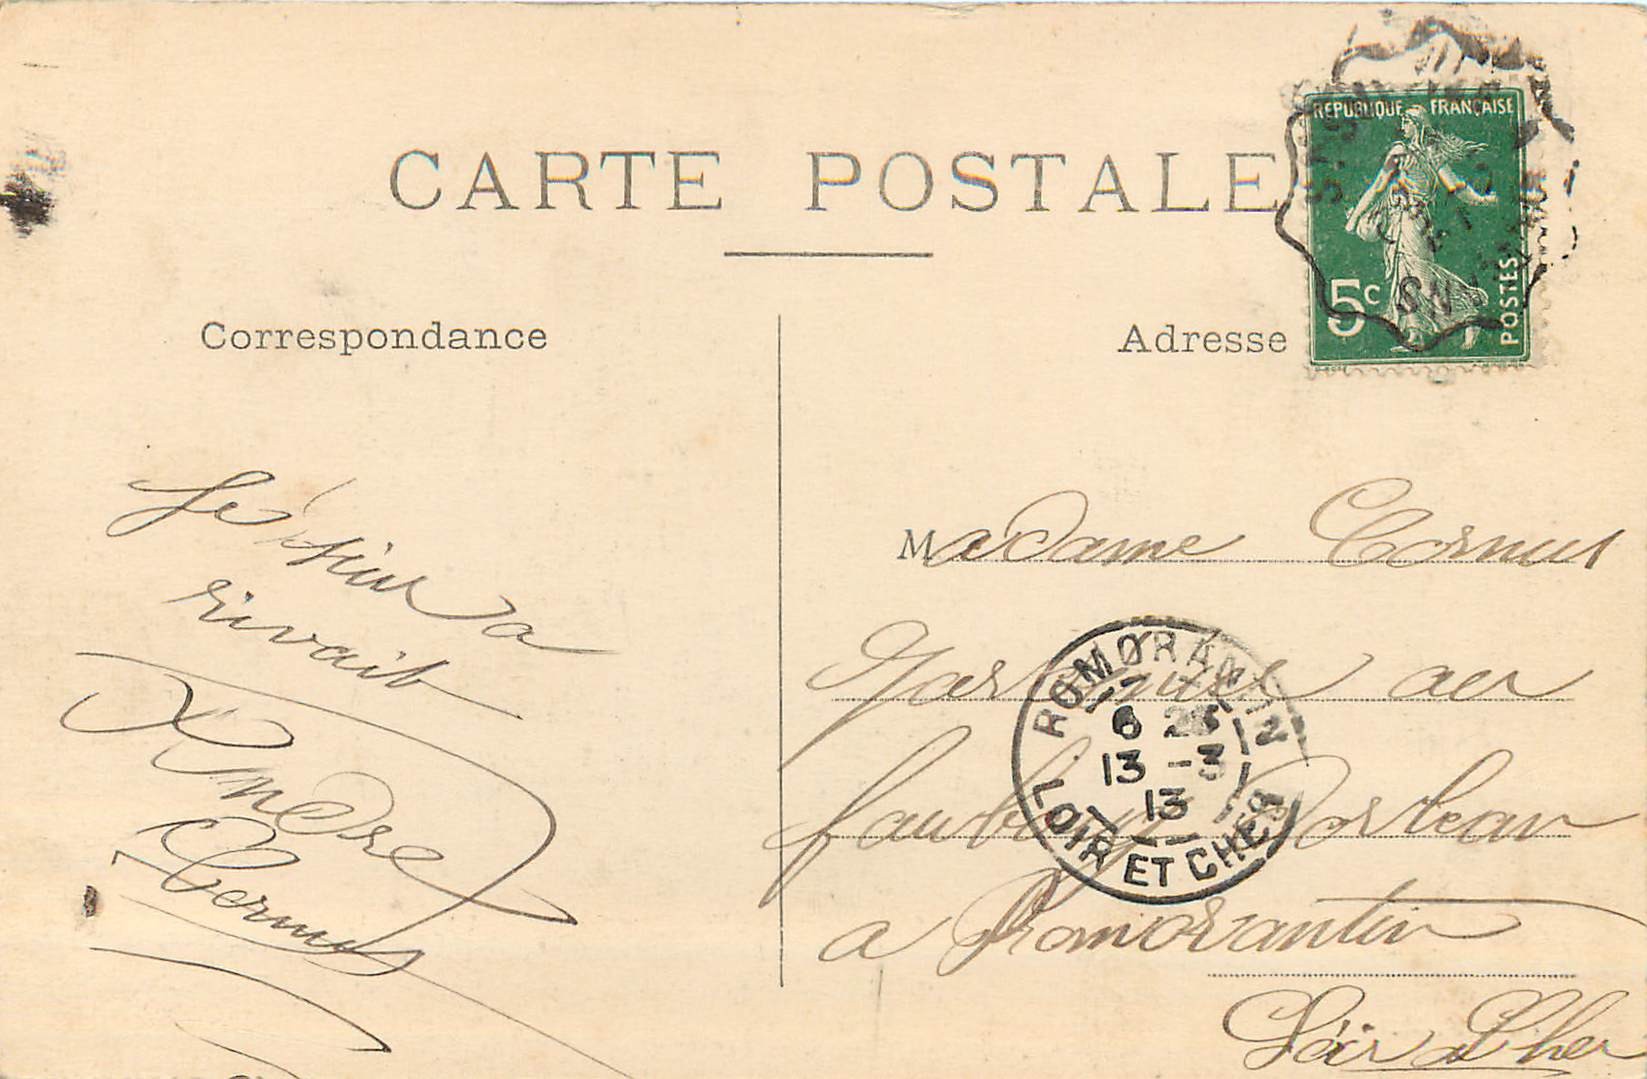 CARTE POSTALE
RÉPUBLIQUE FRANÇAISE
5c
POSTES
Correspondance
Adresse
a
rivait
André
Cornus
Madame Cornus
au
faubourg
a Romorantin
Loir Cher
ROMORANTIN
13 -3
13
LOIR ET CHER